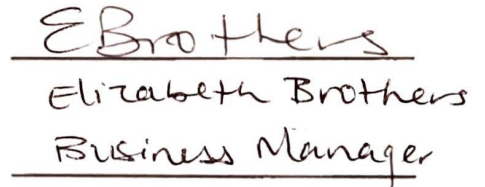 EBrothers
Elizabeth Brothers
Business Manager